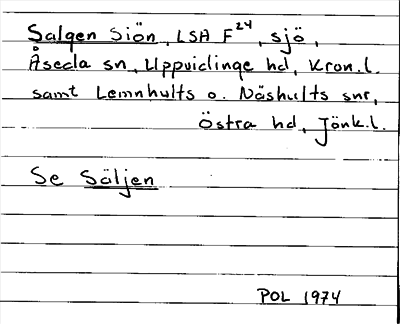 Salgen Siön, LSA F24, sjö,
Åseda sn, Uppvidinge hd, Kron.l.
samt Lemnhults o. Näshults snr,
Östra hd, Jönk.l.
Se Säljen
POL 1974